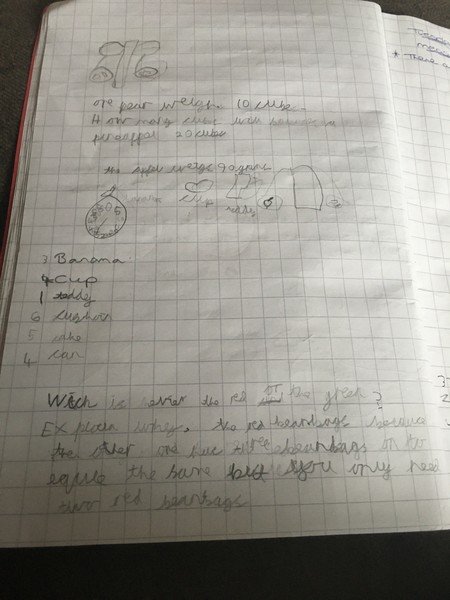 one pear weigh 10 cube
How many cube will balance a
pineapple 20 cubes
the apple weighs 90 grams
cup
teddy
3 Banana
4 Cup
1 teddy
6 cushion
5
4 can
Wich is hevier the red or the green?
Explain why. the red beanbags because
the other one has three beanbags on to
equle the same but you only need
two red beanbags